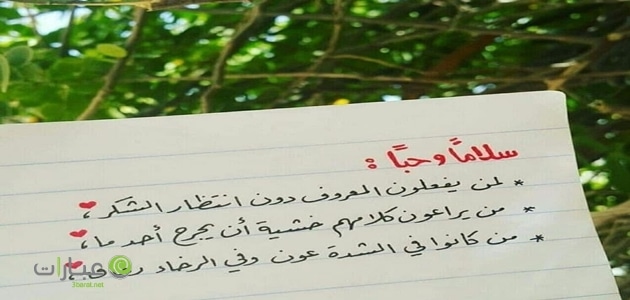 سلامًا وحبًا :
* لمن يفعلون المعروف دون انتظار الشكر ،
* من يراعون كلامهم خشية أن يجرح أحد ما ،
* من كانوا في الشدة عون وفي الرخاء
عبارات
3barat.net